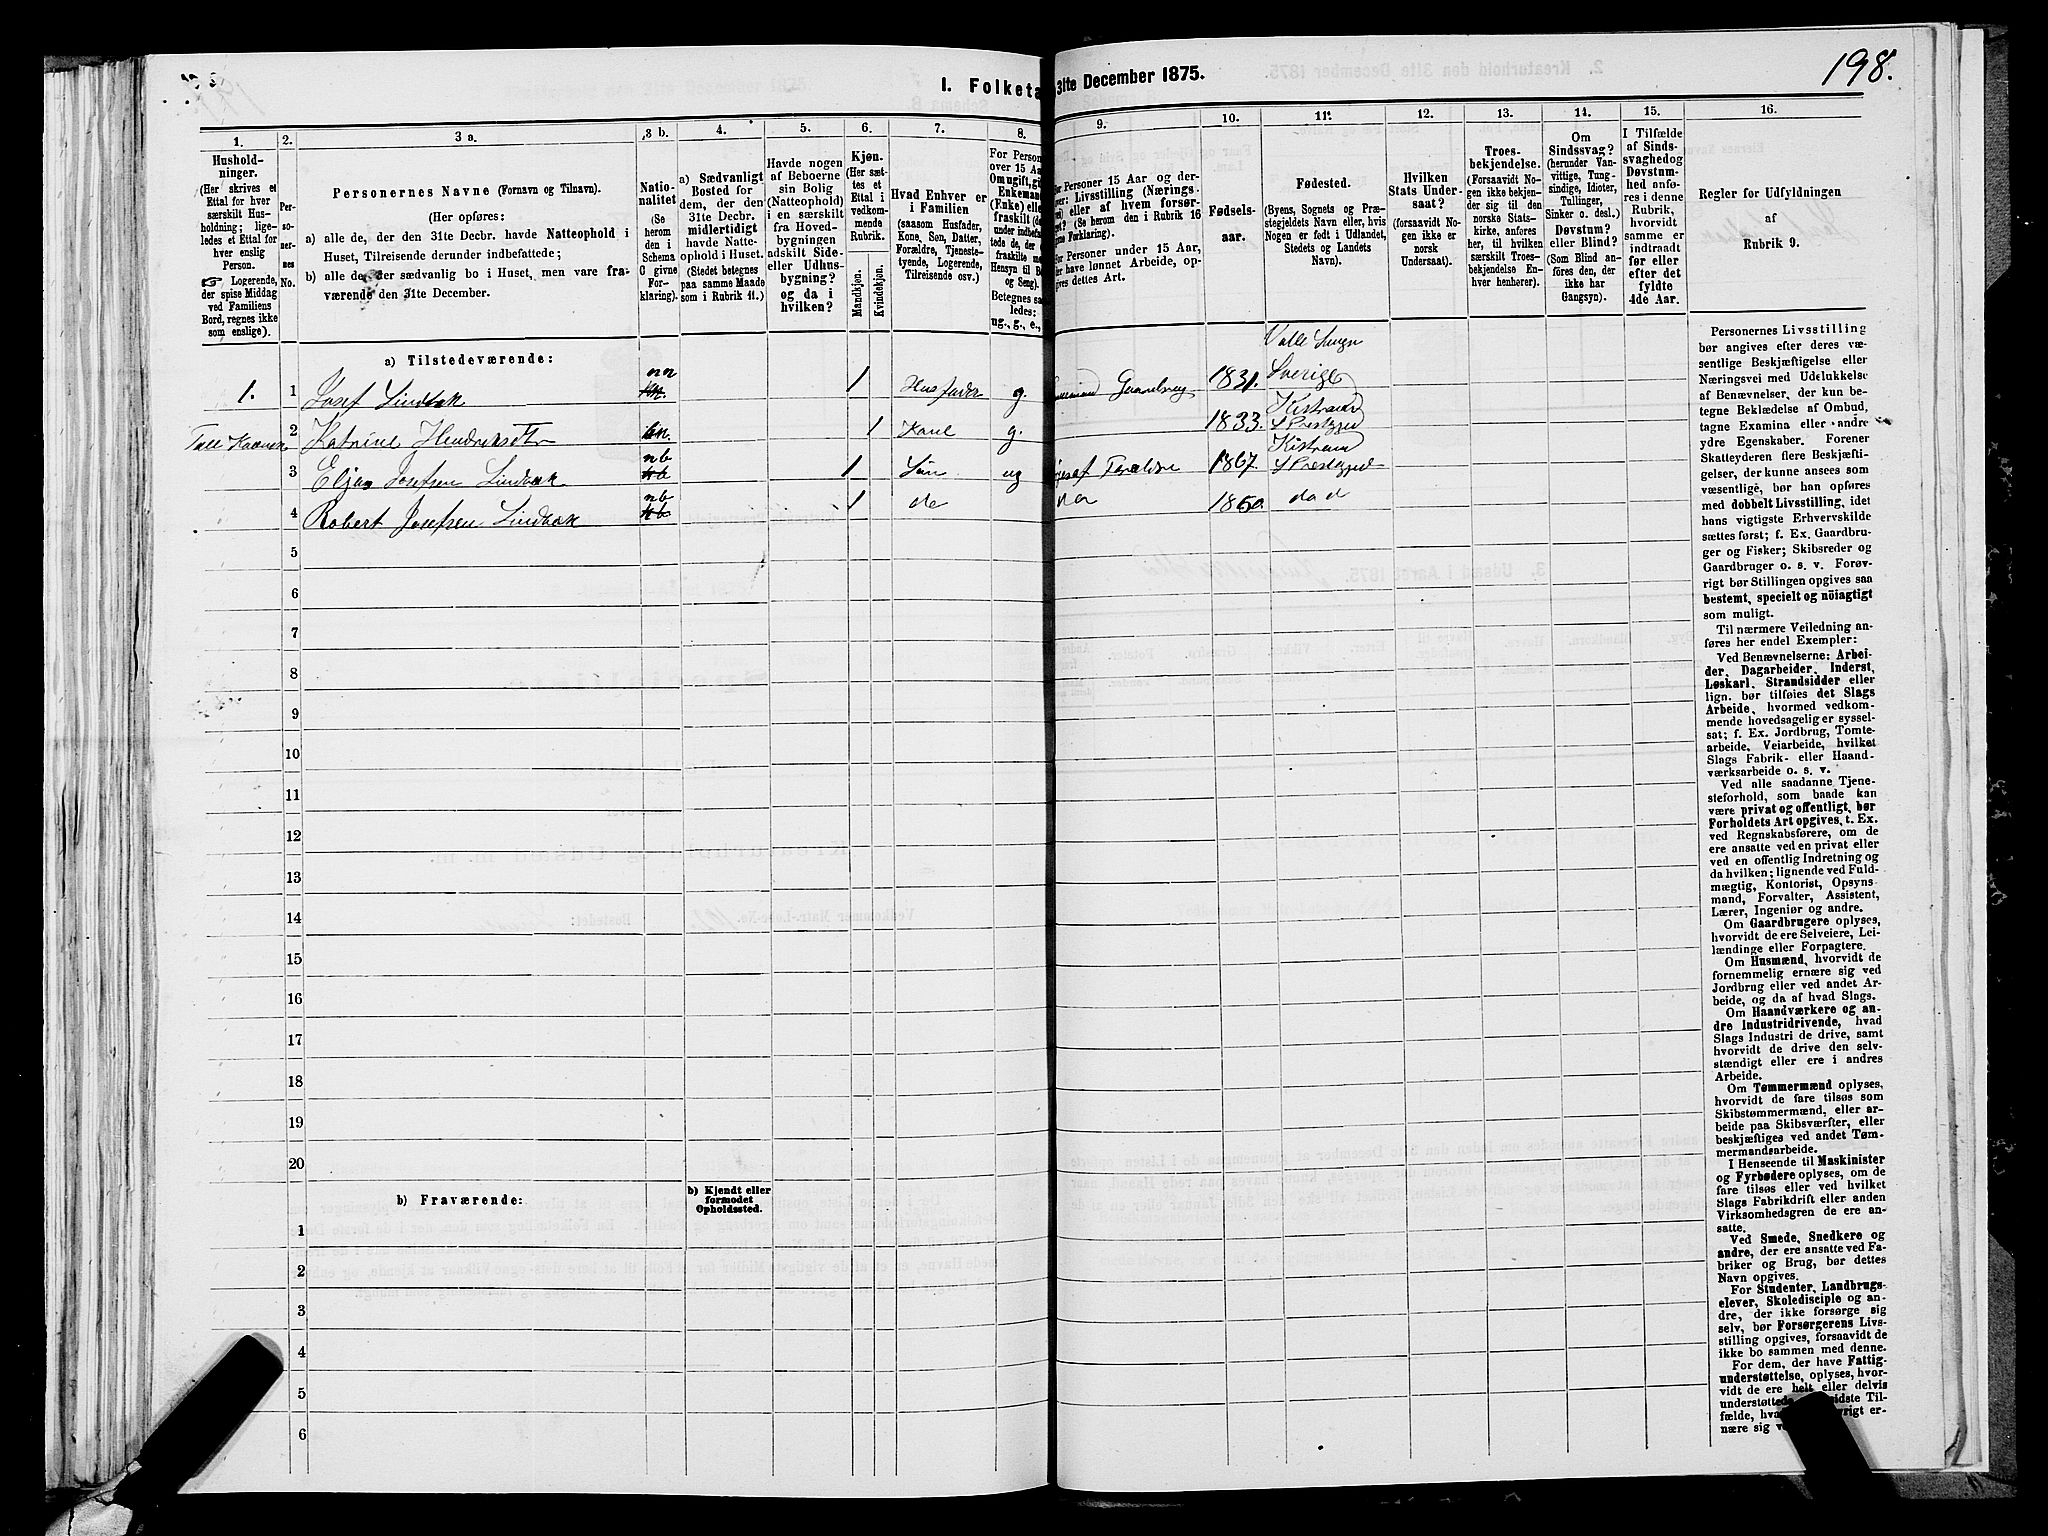 198.
I. Folketa 31te December 1875.
1.
Hushold-
ninger.
(Her skrives et
Ettal for hver
særskilt Hus-
holdning; lige-
ledes et Ettal for
hver enslig
Person.
☞ Logerende,
der spise Middag
ved Familiens
Bord, regnes ikke
som enslige).
2.
Per-
so-
ner-
nes
No.
3 a.
Personernes Navne (Fornavn og Tilnavn).
(Her opføres:
a) alle de, der den 31te Decbr. havde Natteophold i
Huset, Tilreisende derunder indbefattede;
b) alle de, der sædvanlig bo i Huset, men vare fra-
værende den 31te December.
3 b.
Natio-
nalitet
(Se
herom
den i
Schema
C givne
For-
klaring).
4.
a) Sædvanligt
Bosted for
dem, der den
31te Decbr.
midlertidigt
havde Natte-
ophold i Huset.
(Stedet betegnes
paa samme Maade
som i Rubrik 11.)
5.
Havde nogen
af Beboerne
sin Bolig
(Natteophold)
i en særskilt
fra Hoved-
bygningen
adskilt Side-
eller Udhus-
bygning?
og da i
hvilken?
6.
Kjøn.
(Her sæt-
tes et
Ettal i
vedkom-
mende
Rubrik.
Mandkjøn.
Kvindekjøn.
7.
Hvad Enhver er
i Familien
(saasom Husfader,
Kone, Søn, Datter,
Forældre, Tjeneste-
tyende, Logerende,
Tilreisende osv.)
8.
For Person
over 15 Aa
Om ugift, gi
Enkemand
(Enke) elle
fraskilt (de
under indbefat-
tede de, der e
fraskilte me
Hensyn til B
og Seng).
Betegnes sa
ledes:
ug., g., e.,
9.
For Personer 15 Aar og der-
over: Livsstilling (Nærings-
vei) eller af hvem forsør-
get? (Se herom den i Rubrik 16
givne Forklaring).
For Personer under 15 Aar,
der have lønnet Arbeide, op-
gives dettes Art.
10.
Fødsels-
aar.
11.
Fødested.
(Byens, Sognets og Præ-
stegjeldets Navn eller, hvis
Nogen er født i Udlandet,
Stedets og Landets
Navn).
12.
Hvilken
Stats Under-
saat?
(forsaavidt No-
gen ikke er
norsk
Undersaat).
13.
Troes-
bekjendelse.
(Forsaavidt No-
gen ikke bekjen-
der sig til den
norske Stats-
kirke, anfø-
res her, til hvilken
særskilt Troes-
bekjendelse En-
hver henhører).
14.
Om
Sindssvag?
(herunder Van-
vittige, Tung-
sindige, Idioter,
Tullinger,
Sinker o. desl.)
Døvstum?
eller Blind?
(Som Blind an-
føres den, der
ikke har
Gangsyn).
15.
I Tilfælde
af Sinds-
svaghed og
Døvstum-
hed anfø-
res i denne
Rubrik,
hvorvidt
samme er
indtraadt
før eller
efter det
fyldte
4de Aar.
16.
Regler for Udfyldningen
af
Rubrik 9.
a) Tilstedeværende:
1. 1 Josef Lindbak nn 1 Husfader g. Gaardbrug 1831. Sverige
2 Katrine Hendriksdtr 1 Kone g. 1833. Kistrand Prestegjed
3 Eljas Josefsen Lindbak nb 1 Søn ug Foreldre 1867. Kistrand Prestegjed
4 Robert Josefsen Lindbak nb 1 do 18 do d
5
6
7
8
9
10
11
12
13
14
15
16
17
18
19
20
b) Fraværende:
b) Kjendt eller
formodet
Opholdssted.
1
2
3
4
5
6
Personernes Livsstilling
bør angives efter deres væ-
sentlige Beskjæftigelse eller
Næringsvei med Udelukkelse
af Benævnelser, der kun be-
tegne Beklædelse af Ombud,
tagne Examina eller andre
ydre Egenskaber. Forener
Skatteyderen flere Beskjæfti-
gelser, der kunne ansees som
væsentlige, bør han opføres
med dobbelt Livsstilling, idet
hans vigtigste Erhvervskilde
sættes først; f. Ex. Gaardbru-
ger og Fisker; Skibsreder og
Gaardbruger o. s. v. Forøv-
rigt bør Stillingen opgives saa
bestemt, specielt og nöiagtigt
som muligt.
Til nærmere Veiledning an-
føres her endel Exempler:
Ved Benævnelserne: Arbei-
der, Dagarbeider, Inderst,
Løskarl, Strandsidder eller
lign. bør tilføies det Slags
Arbeide, hvormed vedkom-
mende hovedsagelig er syssel-
sat; f. Ex. Jordbrug, Tomte-
arbeide, Veiarbeide, hvilket
Slags Fabrik- eller Haand-
værksarbeide o. s. v.
Ved alle saadanne Tjene-
steforhold, som baade kan
være privat og offentligt, bør
Forholdets Art opgives, t. Ex.
ved Regnskabsførere, om de
ere ansatte ved en privat eller
ved en offentlig Indretning og
da hvilken; lignende ved Fuld-
mægtig, Kontorist, Opsyns-
mand, Forvalter, Assistent,
Lærer, Ingeniør og andre.
Om Gaardbrugere oplyses,
hvorvidt de ere Selveiere, Lei-
lændinge eller Forpagtere.
Om Husmænd, hvorvidt de
fornemmelig ernære sig ved
Jordbrug eller ved andet Ar-
beide, og da af hvad Slags.
Om Haandværkere og an-
dre Industridrivende, hvad
Slags Industri de drive, samt
hvorvidt de drive den selv-
stændigt eller ere i andres
Arbeide.
Om Tømmermænd oplyses,
hvorvidt de fare tilsøs som
Skibstømmermænd, eller ar-
beide paa Skibsværfter, eller
beskjæftiges ved andet Tøm-
mermandsarbeide.
I Henseende til Maskinister
og Fyrbødere oplyses, om de
fare tilsøs eller ved hvilket
Slags Fabrikdrift eller anden
Virksomhedsgren de ere an-
satte.
Ved Smede, Snedkere og
andre, der ere ansatte ved Fa-
briker og Brug, bør dettes
Navn opgives.
For Studenter, Landbrugs-
elever, Skoledisciple og an-
dre, der ikke forsørge sig
selv, bør Forsørgerens Livs-
stilling opgives, forsaavidt de
ikke bo sammen med denne.
For dem, der have Fattig-
understøttelse, oplyses, hvor-
vidt de ere helt eller delvis
understøttede sidste Til-
fælde, er-
nære sig